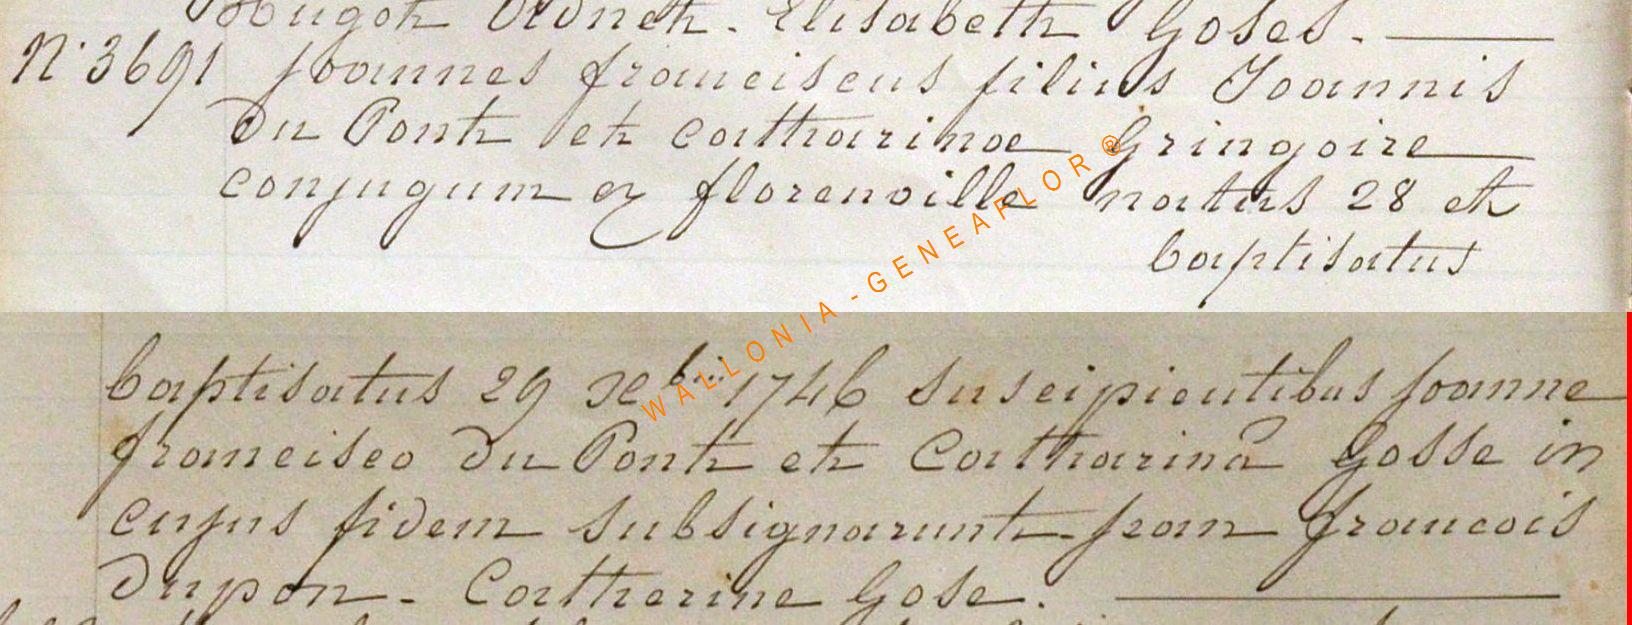 Hugot Ordnet. Elisabeth Goses.
N° 3691 Joannes franciscus filius Joannis
Du Pont et Catharinae Gringoire
conjugum ex florenville natus 28 et
baptisatus
baptisatus 29 Xbris 1746 suscipientibus Joanne
francisco Du Pont et Catharinâ Gosse in
cujus fidem subsignarunt jean francois
Dupon. Catherine Gose.
WALLONIA-GENEAFLOR®